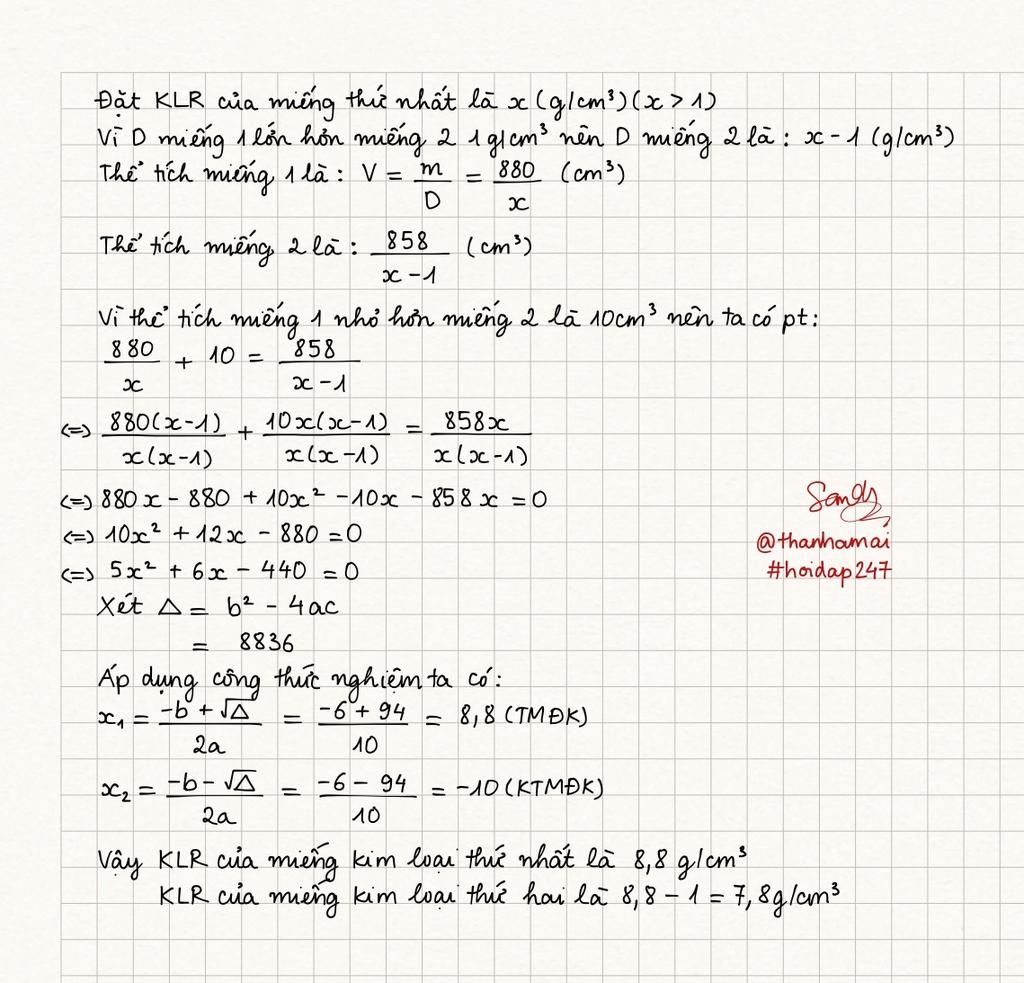 Đặt KLR của miếng thứ nhất là x (g/cm³) (x > 1)
Vì D miếng 1 lớn hơn miếng 2 1 g/cm³ nên D miếng 2 là: x - 1 (g/cm³)
Thể tích miếng 1 là: V = m/D = 880/x (cm³)
Thể tích miếng 2 là: 858/(x - 1) (cm³)
Vì thể tích miếng 1 nhỏ hơn miếng 2 là 10cm³ nên ta có pt:
880/x + 10 = 858/(x - 1)
(=) 880(x-1)/x(x-1) + 10x(x-1)/x(x-1) = 858x/x(x-1)
(=) 880x - 880 + 10x² - 10x - 858x = 0
(=) 10x² + 12x - 880 = 0
(=) 5x² + 6x - 440 = 0
Xét Δ = b² - 4ac
= 8836
Áp dụng công thức nghiệm ta có:
x₁ = (-b + √Δ)/2a = (-6 + 94)/10 = 8,8 (TMĐK)
x₂ = (-b - √Δ)/2a = (-6 - 94)/10 = -10 (KTMĐK)
Vậy KLR của miếng kim loại thứ nhất là 8,8 g/cm³
KLR của miếng kim loại thứ hai là 8,8 - 1 = 7,8g/cm³
@thanhamai
#hoidap247